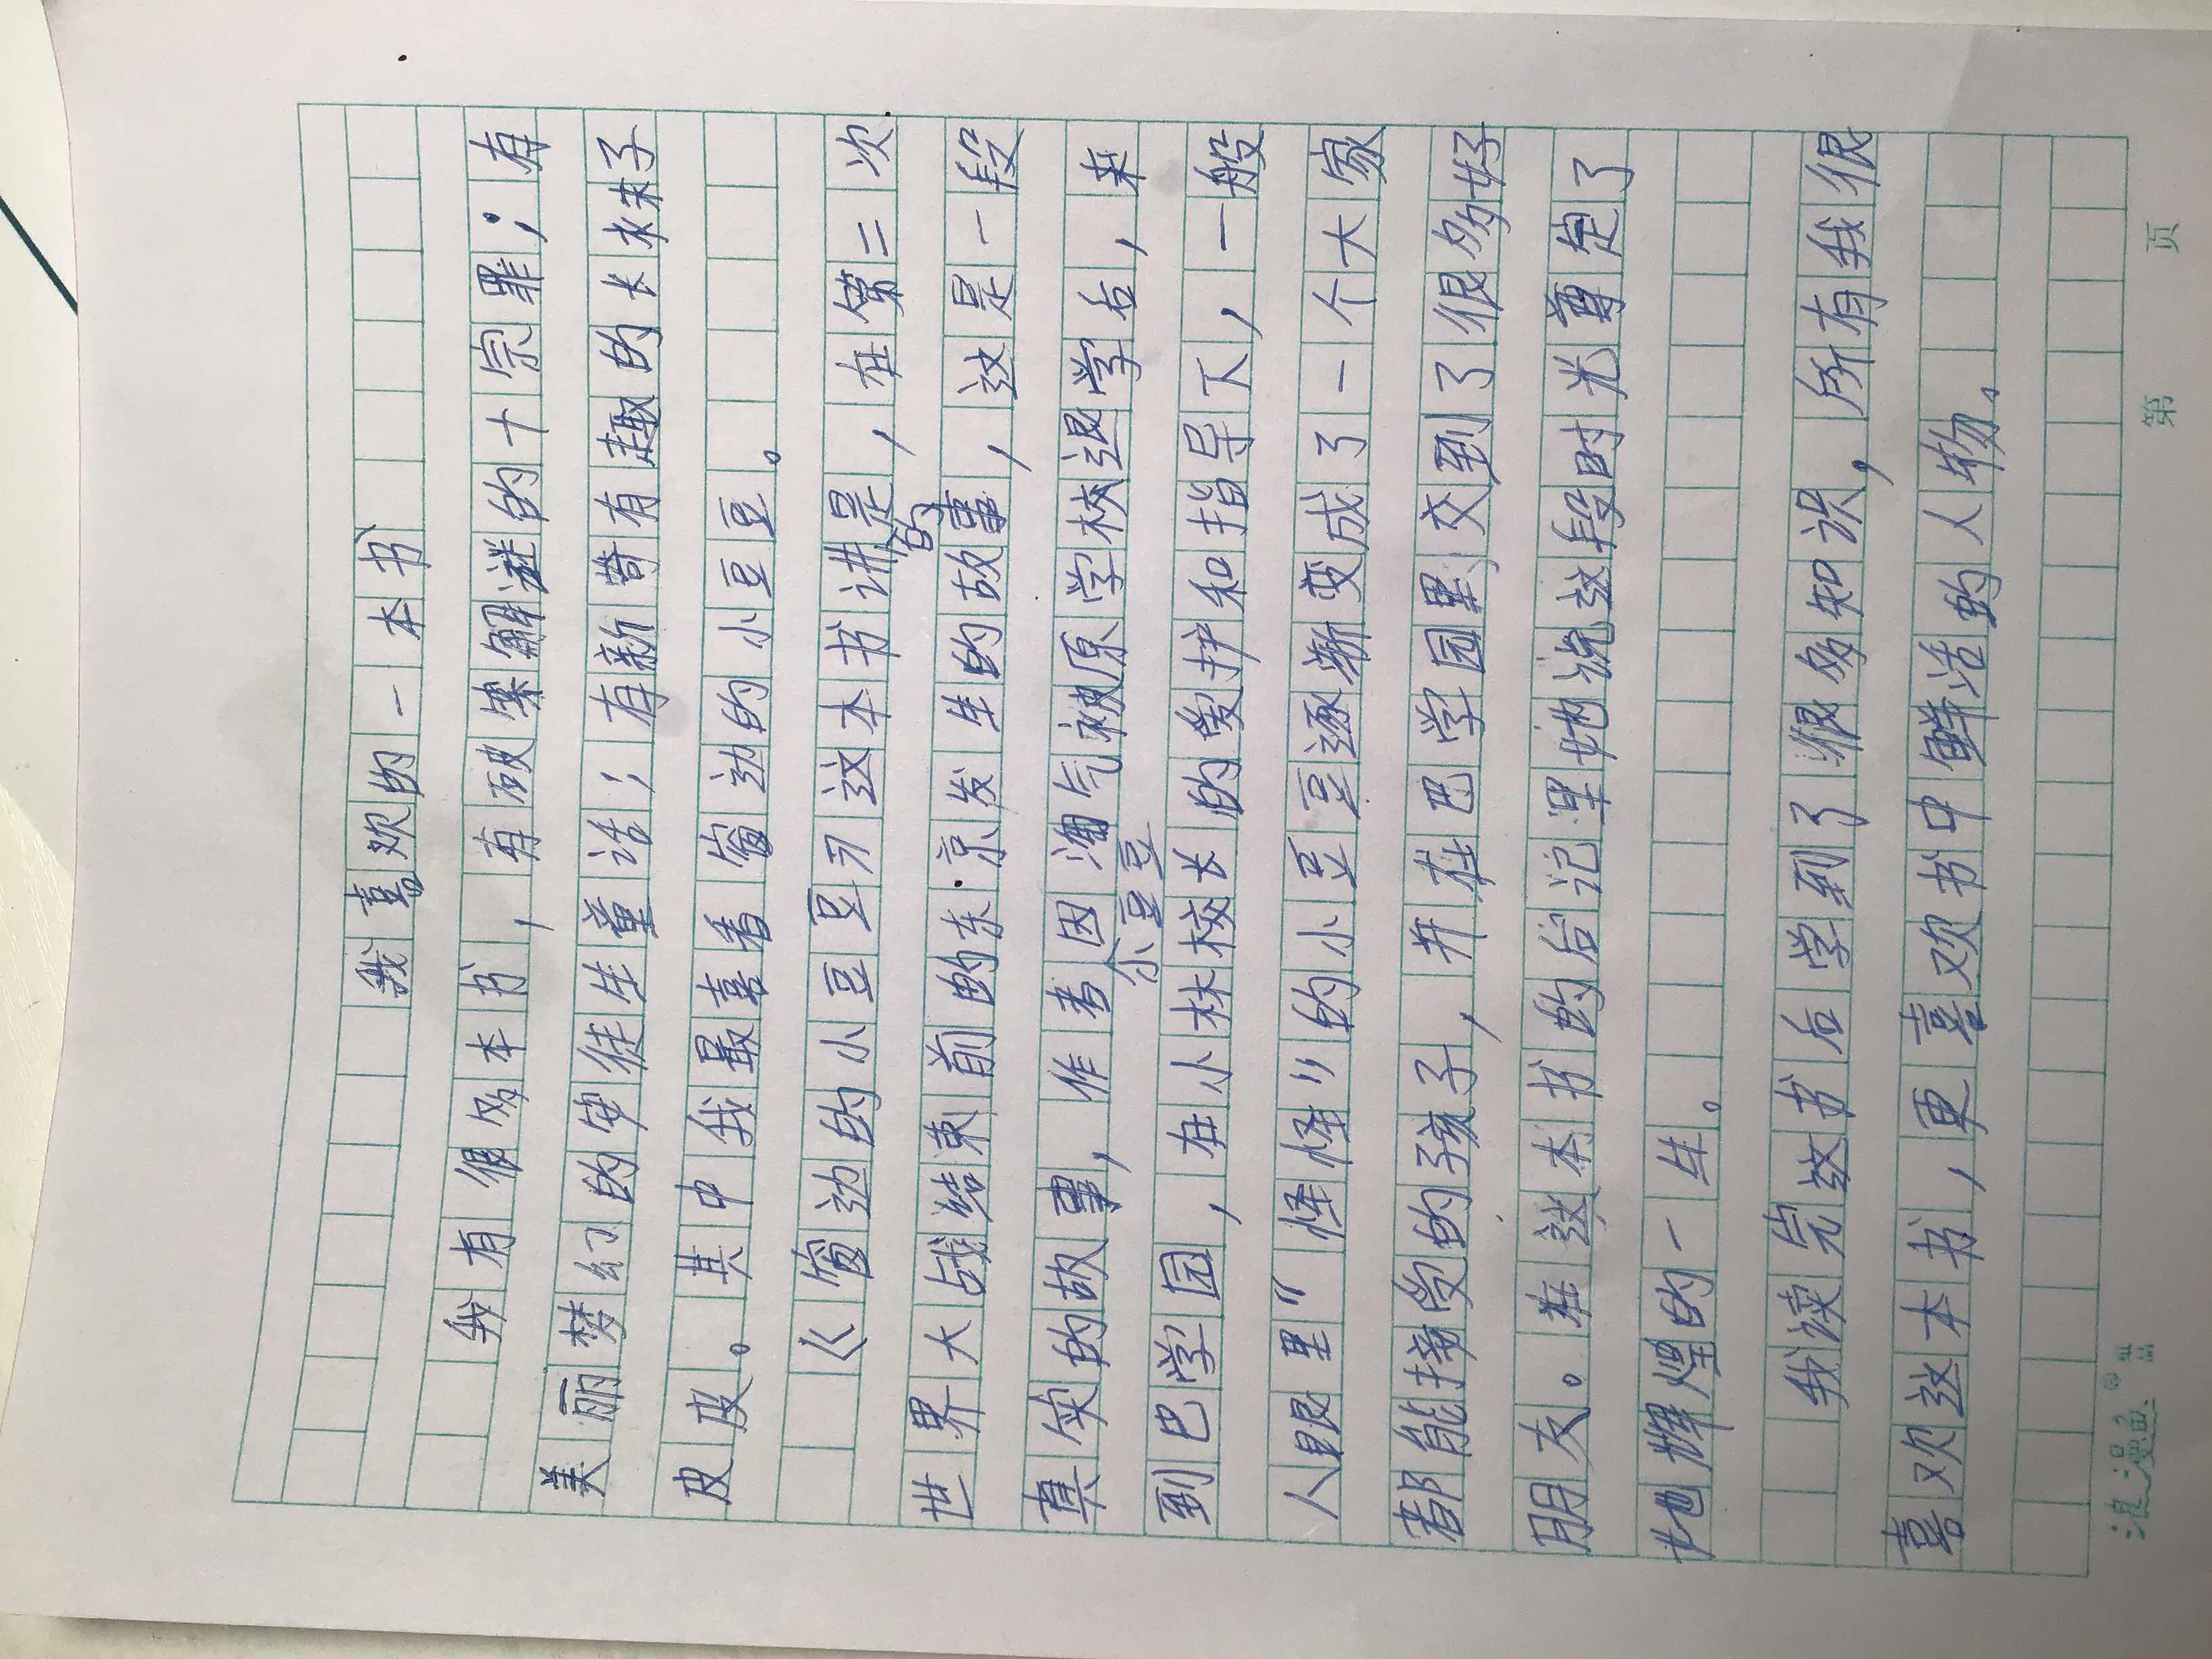 我喜欢的一本书
我有很多本书，有破案解谜的十宗罪；有
美丽梦幻的安徒生童话；有新奇有趣的长袜子
皮皮。其中我最喜看窗边的小豆豆。
《窗边的小豆豆》这本书讲的是，在第二次
世界大战结束前的东京发生的故事，这是一段
真实的故事，作者因淘气被原学校退学后，来
到巴学园，在小林校长的爱护和指导下，一般
人眼里“怪怪”的小豆豆逐渐变成了一个大家
都能接受的孩子，并在巴学园里交到了很多好
朋友。在这本书的后记里她说这段时光尊定了
她辉煌的一生。
我读完这书后学到了很多知识，所有我很
喜欢这本书，更喜欢书中鲜活的人物。
小豆豆
浪漫鱼
第 页